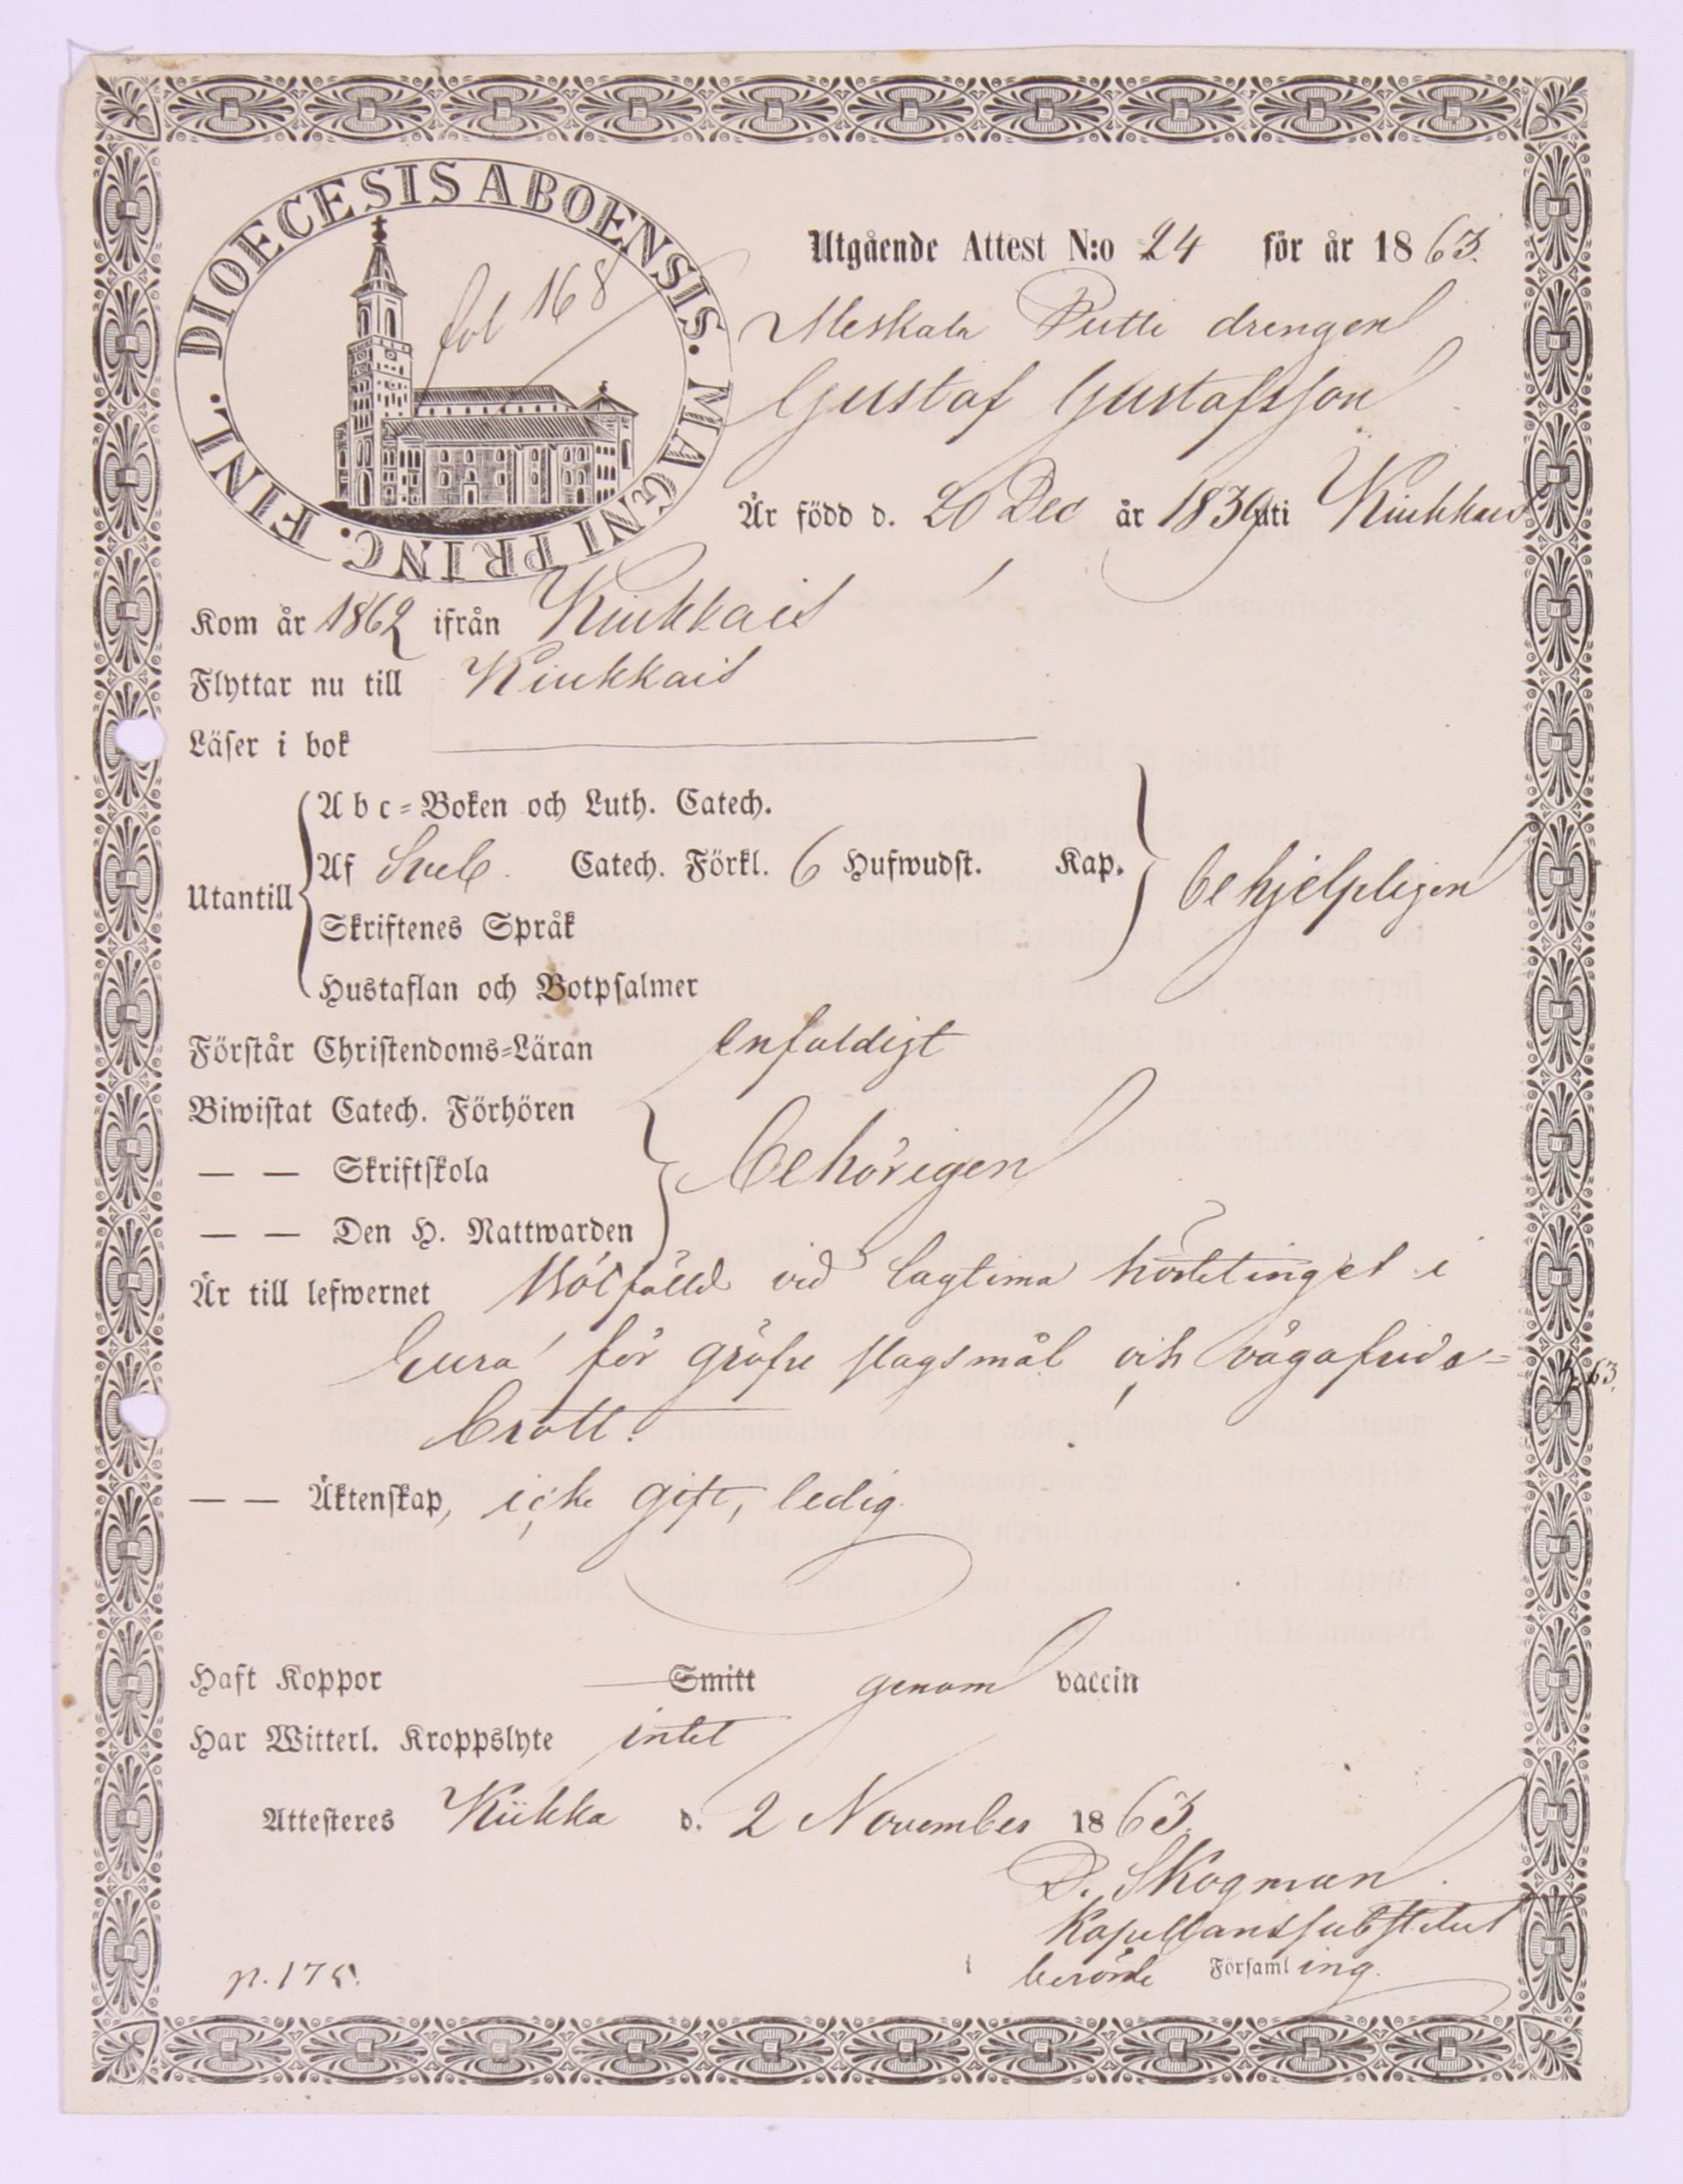 DIOECESIS ABOENSIS. MAGNI PRINC. FINL.
fol 168
Utgående Attest N:o 24 för år 1863.
Meskala Putti drengen
Gustaf Gustafsson
Är född d. 20 Dec år 1839 uti Kiukkais
Kom år 1862 ifrån Kiukkais
Flyttar nu till Kiukkais
Läser i bok
Utantill
Abc=Boken och Luth. Catech.
Af Sveb. Catech. Förkl. 6 Hufwudst. Kap.
behjelpligen
Skriftenes Språk
Hustaflan och Botpsalmer
Förstår Christendoms=Läran enfaldigt
Biwistat Catech. Förhören
— — Skriftskola behörigen
— — Den H. Nattwarden
Är till lefwernet Bötfälld vid lagtima hösttinget i
Eura för gröfre slagsmål och vägafrids=
brott.
63.
— — Äktenskap, icke gift, ledig.
Haft Koppor Smitt genom vaccin
Har Witterl. Kroppslyte intet
Attesteres Kiikka d. 2 November 1863.
D. Skogman.
Kapellanssubstitut
i berörde Församling.
p. 175.